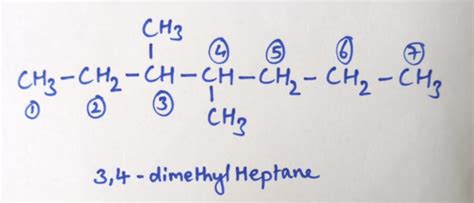 CH₃
④ ⑤ ⑥ ⑦
CH₃-CH₂-CH-CH-CH₂-CH₂-CH₃
① ② ③
CH₃
3,4-dimethyl Heptane